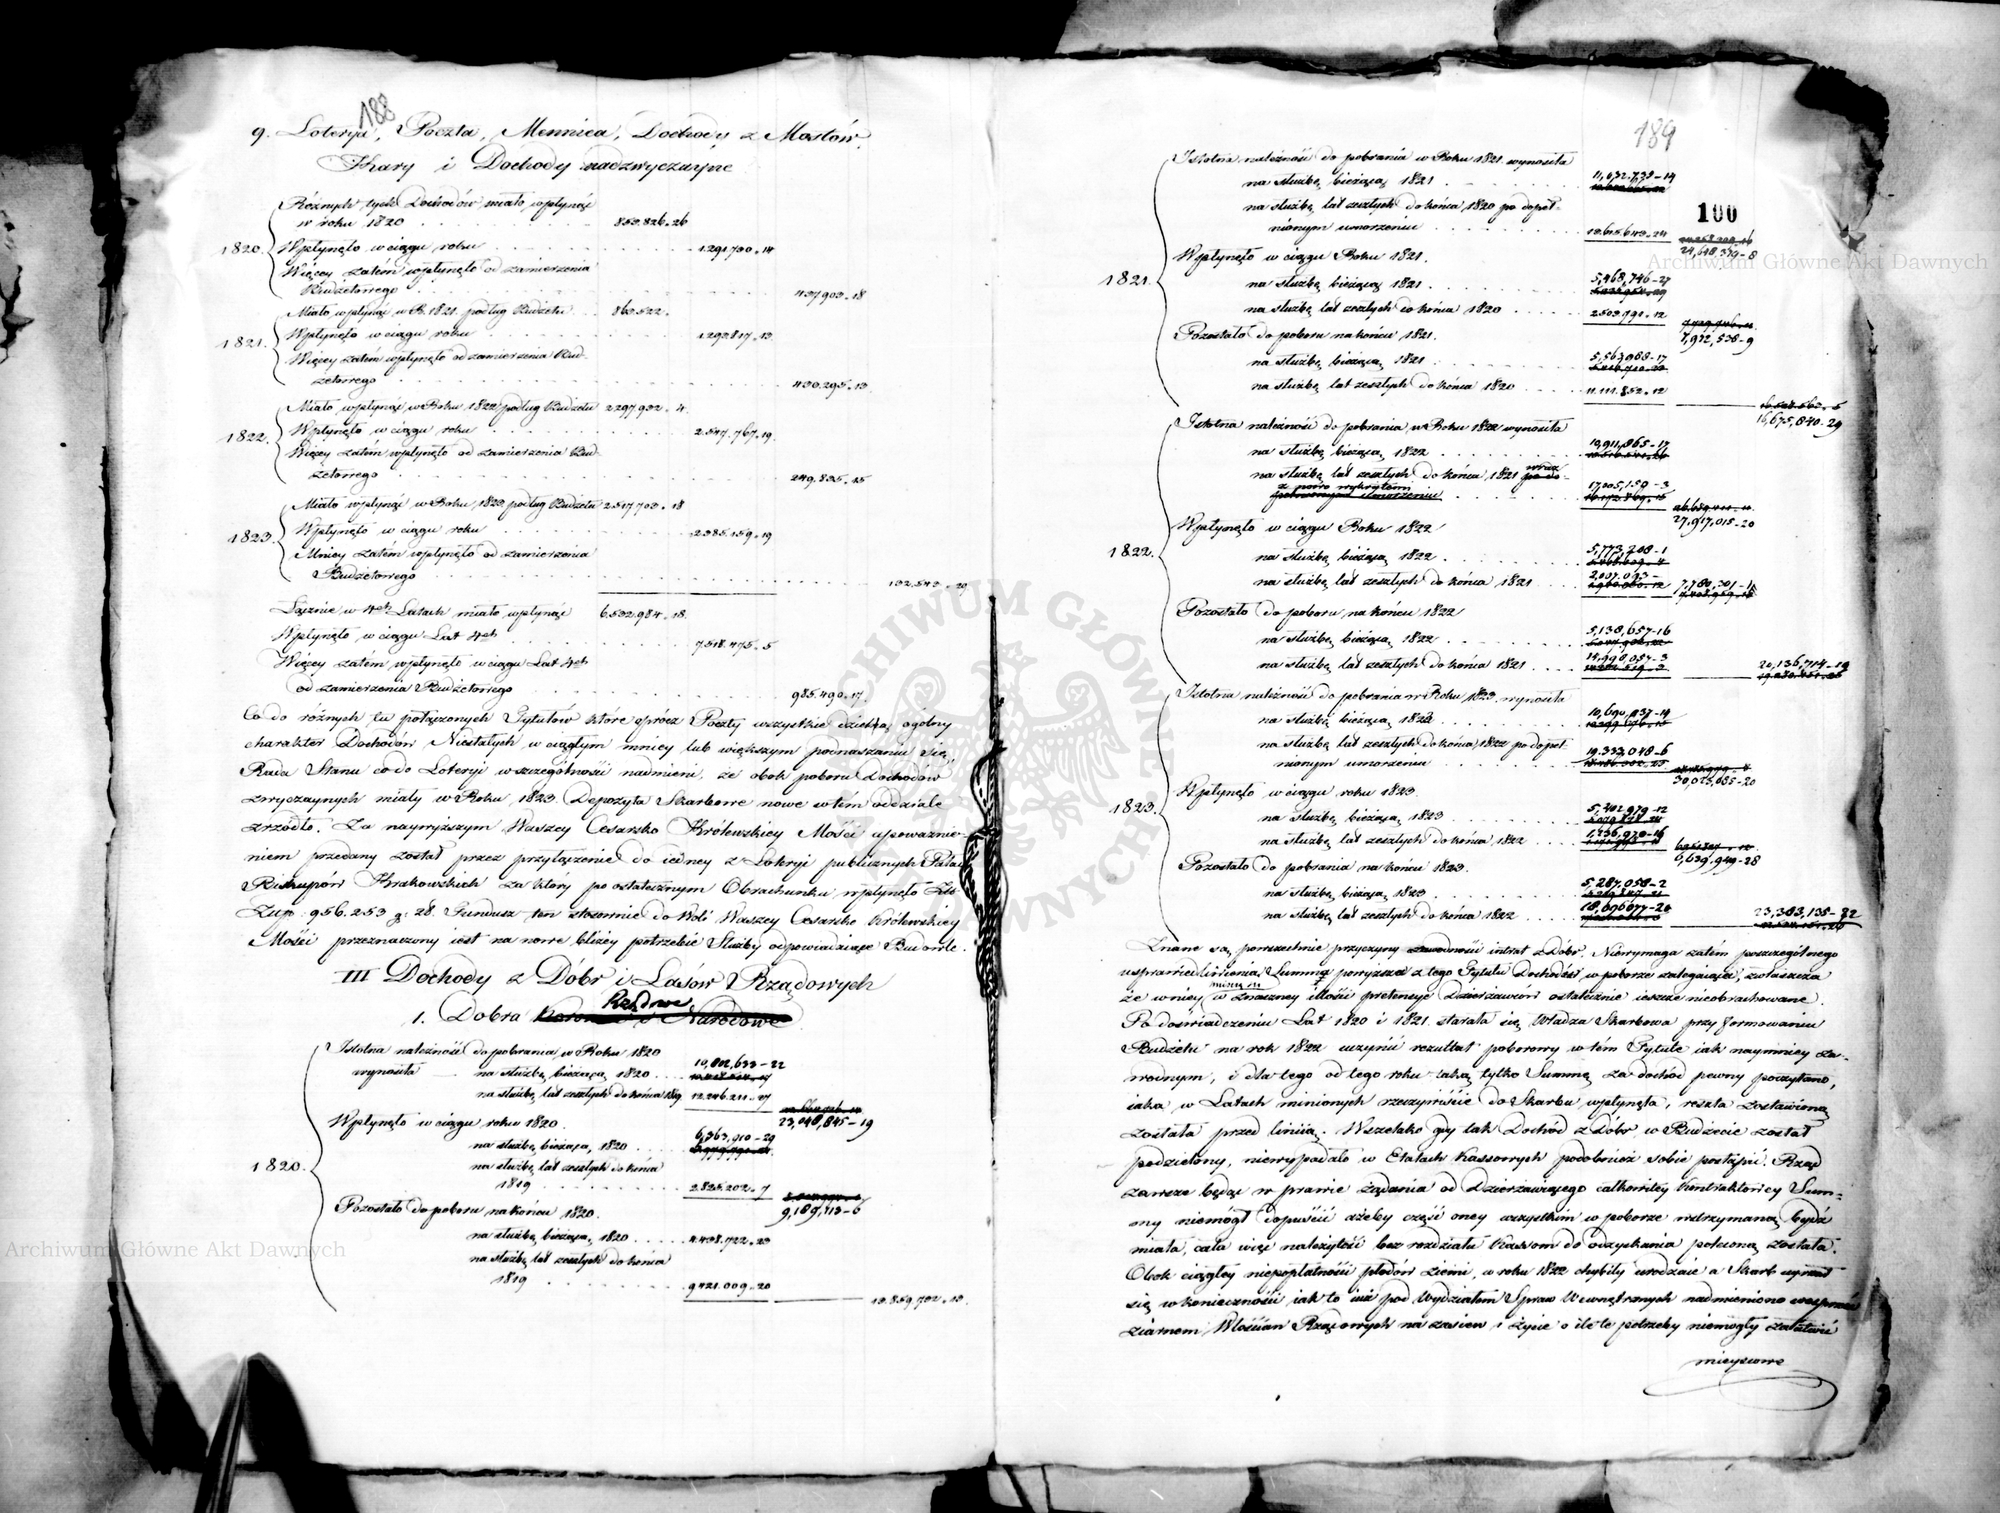 188
9. Loterya, Poczta, Mennica, Dochody z Mostów,
Kary i Dochody nadzwyczayne
Różnych tych Dochodów miało wpłynąć
w roku 1820 853.826.26
1820. Wpłynęło w ciągu roku 1.291.730.14
Więcey zatém wpłynęło od zamierzenia
Budżetowego 437.903.18
Miało wpłynąć w R. 1821. podług Budżetu 863.522.
1821. Wpłynęło w ciągu roku 1.293.817.13
Więcey zatém wpłynęło od zamierzenia Bud-
żetowego 430.295.13
Miało wpłynąć w Roku 1822 podług Budżetu 2.297.932.4.
1822. Wpłynęło w ciągu roku 2.547.767.19.
Więcey zatém wpłynęło od zamierzenia Bud-
żetowego 249.835.15
Miało wpłynąć w Roku 1823 podług Budżetu 2.517.703.18
1823. Wpłynęło w ciągu roku 2.385.159.19
Mniey zatém wpłynęło od zamierzenia
Budżetowego 132.543.29
Łącznie w 4ch Latach miało wpłynąć 6.532.984.18.
Wpłynęło w ciągu Lat 4ch 7.518.475.5
Więcey zatém wpłynęło w ciągu Lat 4ch
od zamierzenia Budżetowego 985.490.17.
Co do różnych tu połączonych Tytułów które oprócz Poczty wszystkie dzielą ogólny
charakter Dochodów Niestałych w ciągłym mniey lub większym podnaszaniu się,
Rada Stanu co do Loteryi w szczególności nadmieni, że obok poboru Dochodów
zwyczaynych miały w Roku 1823 Depozyta Skarbowe nowe w tém oddziale
zrzódło. Za naywyższym Waszey Cesarsko Królewskiey Mości upoważnie-
niem przedany został przez przyłączenie do iedney z Loteryi publicznych Pałac
Biskupów Krakowskich za który po ostatecznym Obrachunku wpłynęło
Złp: 956.253 g: 28. Fundusz ten stosownie do Woli Waszey Cesarsko Królewskiey
Mości przeznaczony iest na nowe bliżey potrzebie Służby odpowiadaiące Budowle.
III Dochody z Dóbr i Lasów Rządowych
Rządowe
1. Dobra i Narodowe
Istotna należność do pobrania w Roku 1820
wynosiła na służbę bieżącą 1820 10,802,633-22
na służbę lat zeszłych do końca 1819 12.246.211.27
23,048,845-19
Wpłynęło w ciągu roku 1820.
na służbę bieżącą 1820 6,363,910-29
1820. na służbę lat zeszłych do końca
1819 2.825.202.7
9,189,113-6
Pozostało do poboru na końcu 1820.
na służbę bieżącą 1820 4.438.722.23
na służbę lat zeszłych do końca
1819 9.421.009.20
13.859.732.13.
189
100
Istotna należność do pobrania w Roku 1821 wynosiła
na służbę bieżącą 1821 11,032,735-14
na służbę lat zeszłych do końca 1820 po dopeł-
nionym umorzeniu 13.615.643.24
24,648,379-8
Wpłynęło w ciągu Roku 1821.
1821. na służbę bieżącą 1821 5,468,746-27
na służbę lat zeszłych do końca 1820 2.503.791.12
7,972,538-9
Pozostało do poboru na końcu 1821.
na służbę bieżącą 1821 5,563,988-17
na służbę lat zeszłych do końca 1820 11.111.852.12
16,675,840-29
Istotna należność do pobrania w Roku 1822 wynosiła
na służbę bieżącą 1822 10,911,865-17
na służbę lat zeszłych do końca 1821 wraz
z nowo wykrytemi 17,005,150-3
27,917,015-20
Wpłynęło w ciągu Roku 1822
1822. na służbę bieżącą 1822 5,773,208-1
na służbę lat zeszłych do końca 1821 2,007,093-
7,780,301-1
Pozostało do poboru na końcu 1822
na służbę bieżącą 1822 5,138,657-16
na służbę lat zeszłych do końca 1821 14,998,057-3
20,136,714-19
Istotna należność do pobrania w Roku 1823 wynosiła
na służbę bieżącą 1823 10,690,037-14
na służbę lat zeszłych do końca 1822 po dopeł-
nionym umorzeniu 19,333,048-6
30,023,085-20
Wpłynęło w ciągu roku 1823.
1823. na służbę bieżącą 1823 5,402,979-12
na służbę lat zeszłych do końca 1822 1,236,970-16
6,639,949-28
Pozostało do pobrania na końcu 1823.
na służbę bieżącą 1823 5,287,058-2
na służbę lat zeszłych do końca 1822 18,096,077-20
23,383,135-22
Znane są powszechnie przyczyny zawodności intrat z Dóbr. Niewymaga zatém poszczególnego
usprawiedliwienia Summa powyższa z tego Tytułu Dochodów w poborze zalegaiąca, zwłaszcza
że w niey w znaczney ilości pretensye Dzierżawców ostatecznie ieszcze nieobrachowane.
Po doświadczeniu Lat 1820 i 1821. starała się Władza Skarbowa przy formowaniu
Budżetu na rok 1822 uczynić rezultat poborowy w tém Tytule iak naymniey za-
wodnym, i dla tego od tego roku taką tylko Summę za dochód pewny poczytano,
iaka w Latach minionych rzeczywiście do Skarbu wpłynęła, reszta zostawiona
została przed liniią. Wszelako gdy tak Dochód z Dóbr w Budżecie został
podzielony, niewypadało w Etatach Kassowych podobnież sobie postąpić. Rząd
zawsze będąc w prawie żądania od Dzierżawiącego całkowitey kontraktowey Sum-
my niemógł dopuścić ażeby część oney wszystkim w poborze wstrzymana bydź
miała, cała więc należytość bez rozdziału Kassom do odzyskania poleconą została.
Obok ciągłey niepopłatności płodów ziemi, w roku 1822 chybiły urodzaie a Skarb uyrzał
się w konieczności iak to iuż pod Wydziałem Spraw Wewnętrznych nadmieniono wesprzeć
ziarnem Włościan Rządowych na zasiew i życie o ile te potrzeby niemogły załatwić
mieyscowe
Archiwum Główne Akt Dawnych
Archiwum Główne Akt Dawnych
ARCHIWUM GŁÓWNE AKT DAWNYCH